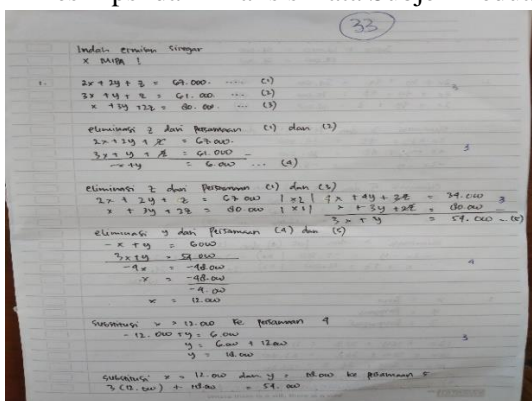 33
Indah ermina siregar
X MIPA 1
1. 2x + 2y + z = 67.000 .... (1)
3x + y + z = 61.000 ... (2)
x + 3y + 2z = 80.000 ... (3)
3
eliminasi z dari persamaan (1) dan (2)
2x + 2y + z = 67.000
3x + y + z = 61.000 -
3
-x + y = 6.000 ... (4)
eliminasi z dari persamaan (1) dan (3)
2x + 2y + z = 67.000 | x2 | 4x + 4y + 2z = 134.000 3
x + 3y + 2z = 80.000 | x1 | x + 3y + 2z = 80.000
3x + y = 54.000 ... (5)
eliminasi y dari persamaan (4) dan (5)
-x + y = 6000
3x + y = 54.000
-4x = -48.000
x = -48.000
4
-4.000
x = 12.000
substitusi x = 12.000 ke persamaan 4
-12.000 + y = 6.000
3
y = 6.000 + 12.000
y = 18.000
substitusi x = 12.000 dan y = 18.000 ke persamaan 5
3 (12.000) + 18.000 = 54.000